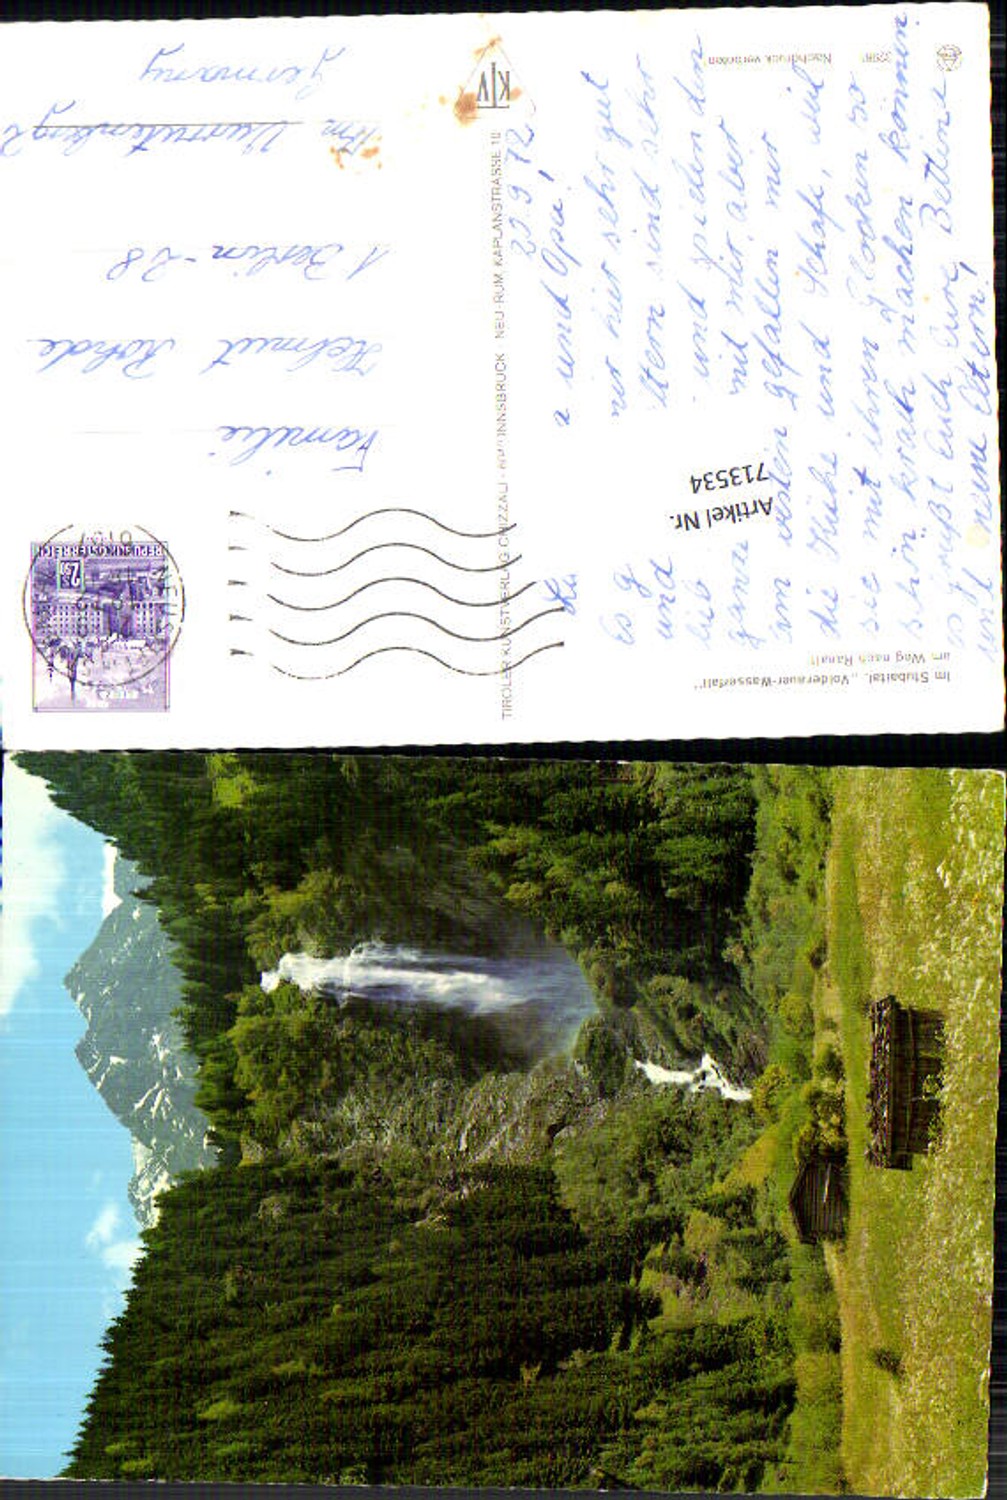 Im Stubaital. „Volderauer-Wasserfall"
am Weg nach Ranalt
Artikel Nr.
713534
Nachdruck verboten
23.9.72
und Opa!
Es g hier sehr gut
und ltern sind sehr
lieb und spielen den
ganze mit mir, aber
am besten gefallen mir
die Kühe und Schafe, weil
sie mit ihren Glocken so
schön krach machen können
Es grüßt Euch Eure Bettina
und meine Eltern!
TIROLER KUNSTVERLAG CHIZZALI · INNSBRUCK NEU-RUM, KAPLANSTRASSE 18
KTV
REPUBLIK ÖSTERREICH
2.50
Familie
Helmut Rohde
1 Berlin-28
Am
Germany